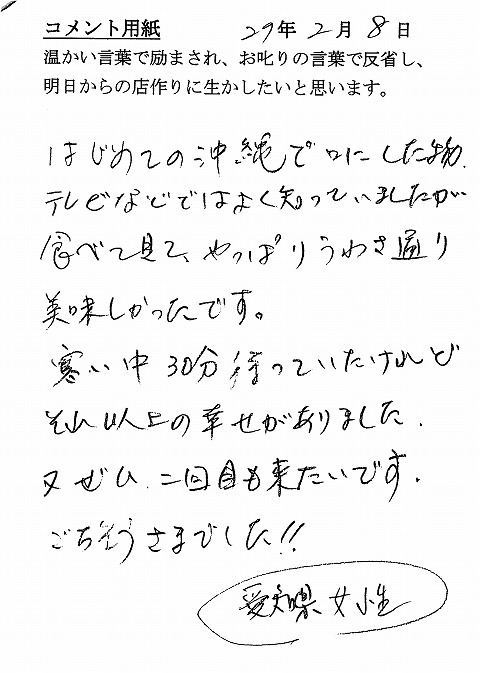 コメント用紙 29年2月8日
温かい言葉で励まされ、お叱りの言葉で反省し、
明日からの店作りに生かしたいと思います。
はじめての沖縄で口にした物、
テレビなどではよく知っていましたが
食べて見て、やっぱりうわさ通り
美味しかったです。
寒い中30分待っていたけれど
それ以上の幸せがありました。
又ぜひ、二回目も来たいです。
ごちそうさまでした!!
愛知県女性